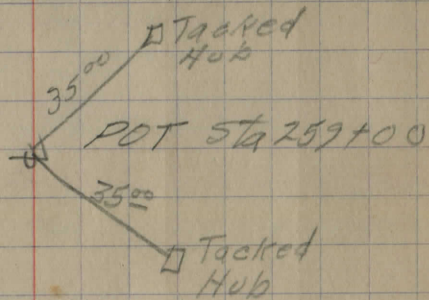 Tacked
Hub
35⁰⁰
POT Sta 259+00
35⁰⁰
Tacked
Hub